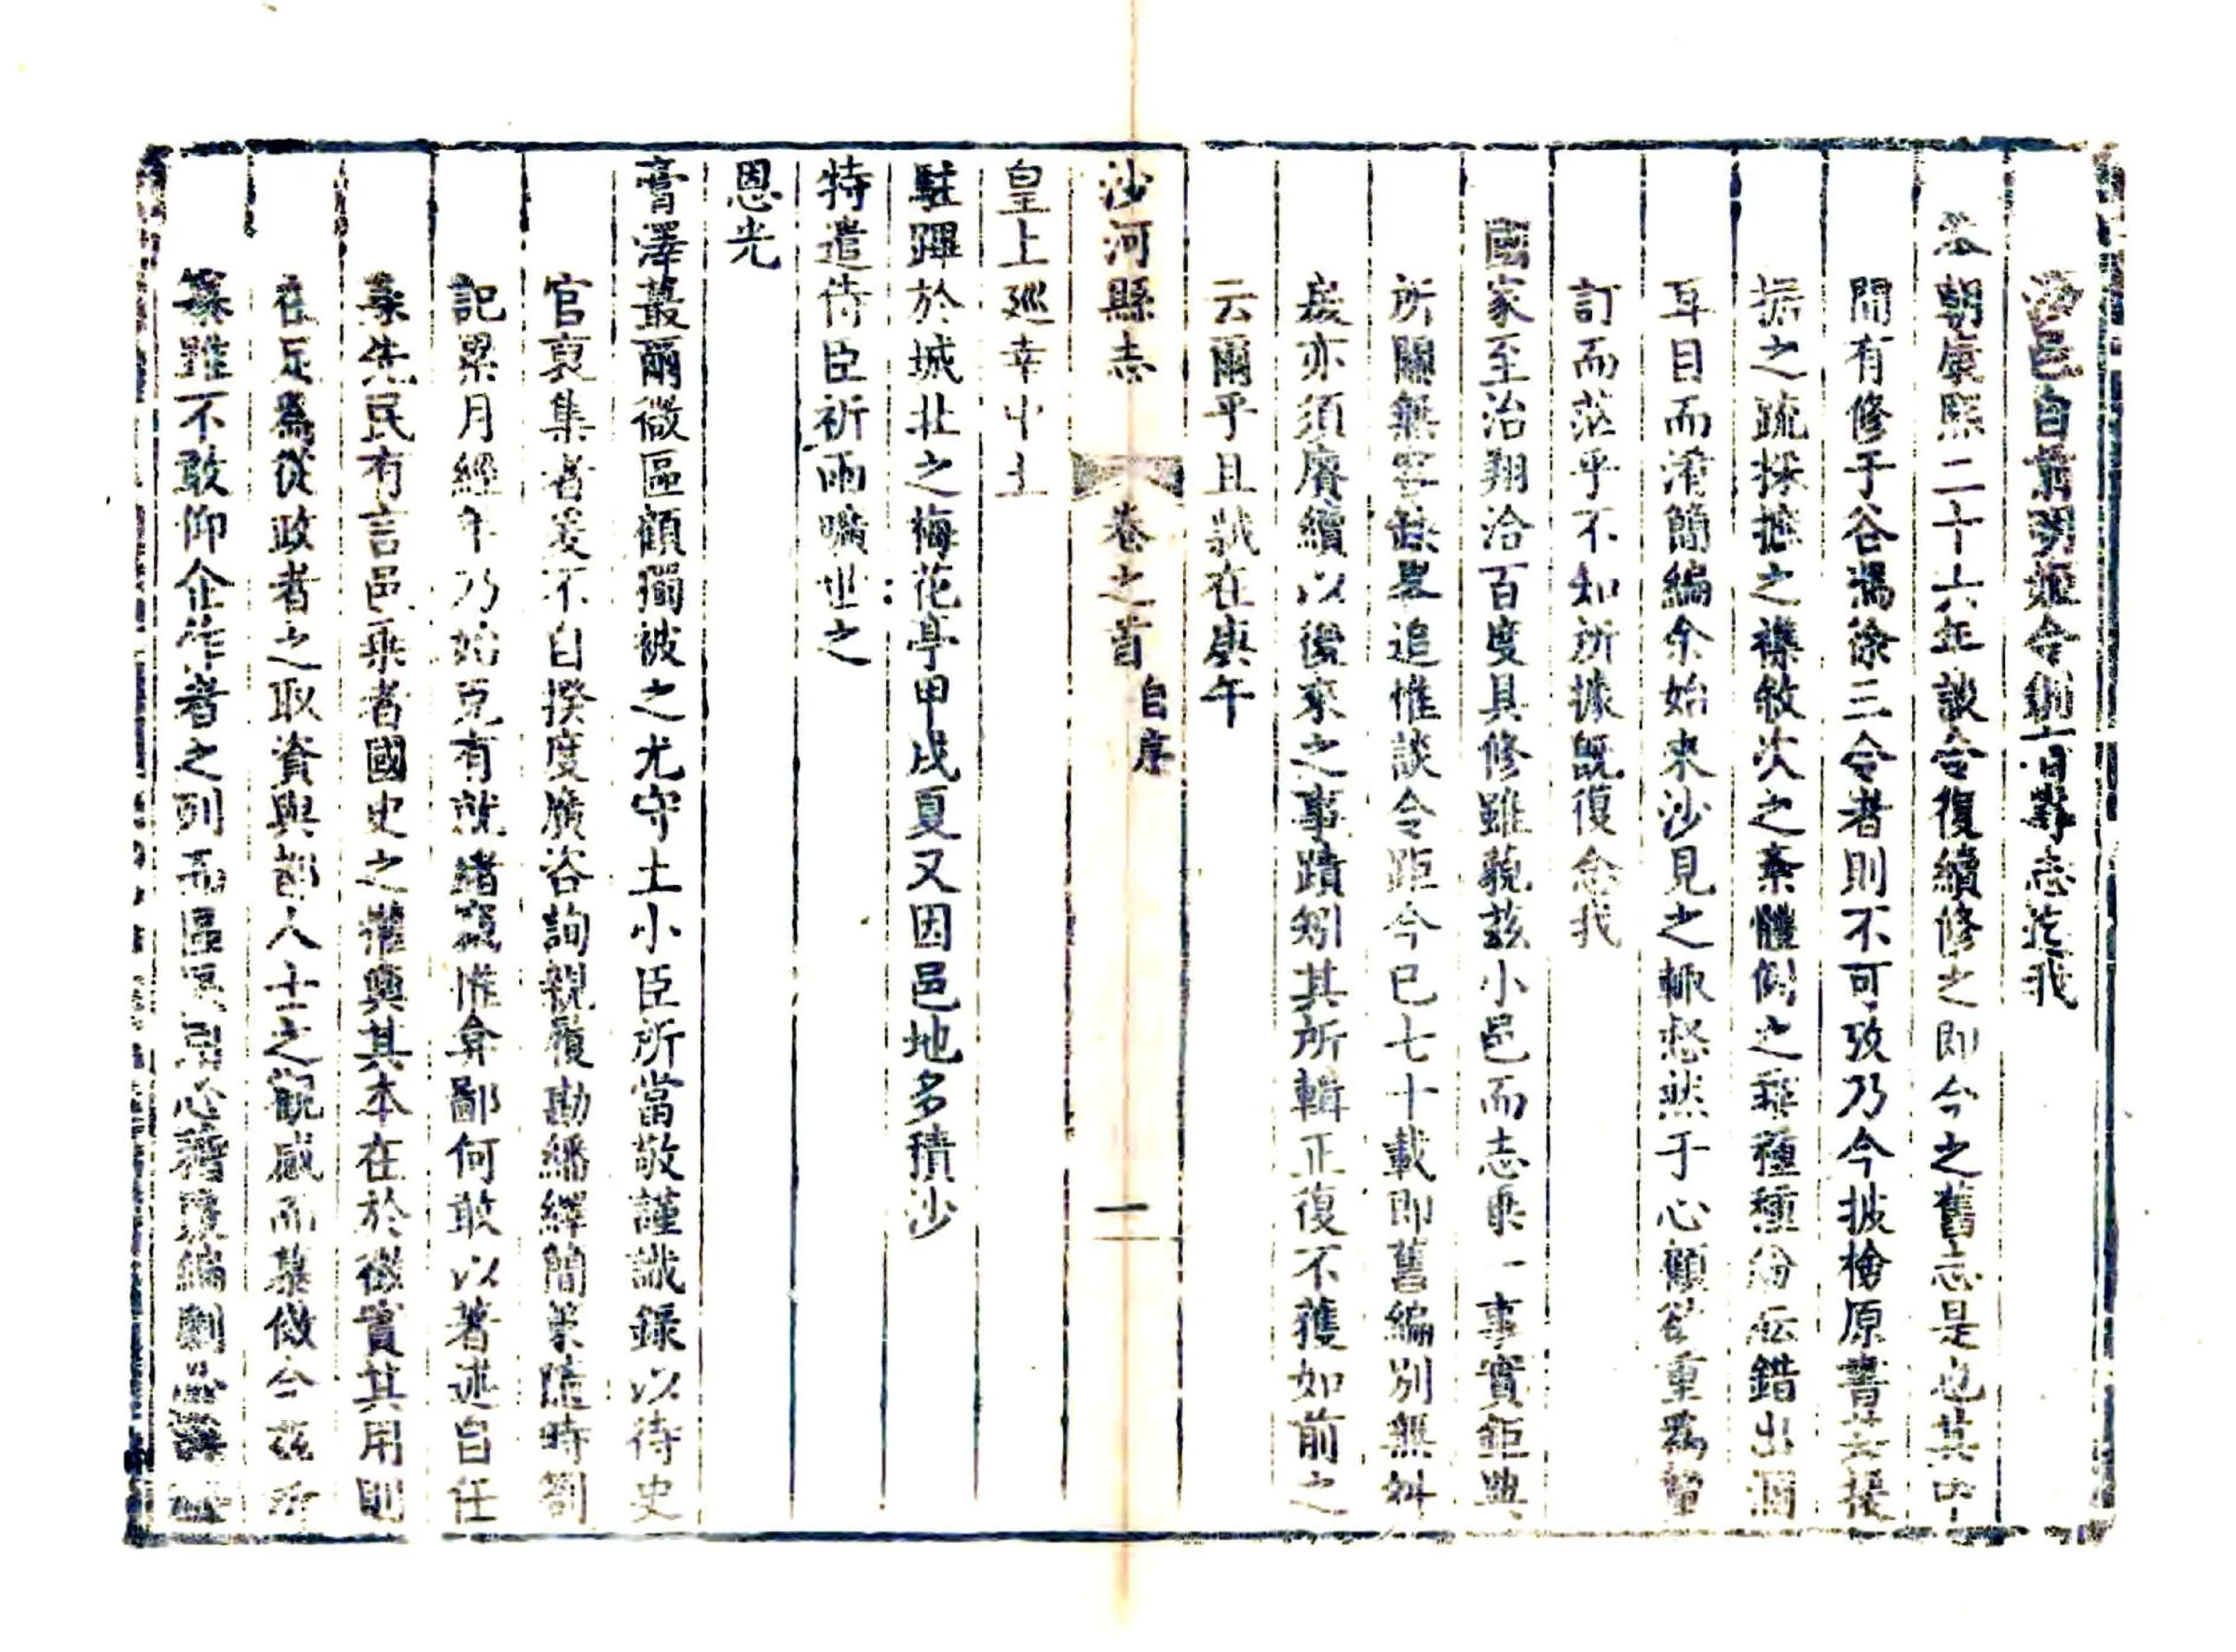 沙邑自前明姬令創首舉志迄我
本朝康熙二十六年談令復續修之即今之舊志是也其中
間有修于谷馮徐三令者則不可攷乃今披檢原書其援
據之疏採摭之襍敘次之紊體例之乖種種紛紜錯出溷
耳目而淆簡編余始來沙見之輒怒然于心顧欲重為釐
訂而茫乎不知所據旣復念我
國家至治翔洽百度具修雖藐茲小邑而志乗一事實鉅典
所關無容缺畧追惟談令距今已七十載即舊編別無糾
爰亦須賡續以後來之事蹟矧其所輯正復不獲如前之
云爾乎且歲在庚午
沙河縣志 卷之首 自序 一
皇上巡幸中土
駐蹕於城北之梅花亭甲戌夏又因邑地多積沙
特遣侍臣祈雨嘯世之
恩光
膏澤蕞爾微區顧獨被之尤守土小臣所當敬謹識録以待史
官裒集者爰不自揆度廣咨詢親履勘繙繹簡策隨時劄
記累月經年乃始克有就緒竊惟弇鄙何敢以著述自任
第先民有言邑乗者國史之權輿其本在於徵實其用則
在足為從政者之取資與都人士之觀感而慕倣今茲所
纂雖不敢仰企作者之列而區區 心稽 編